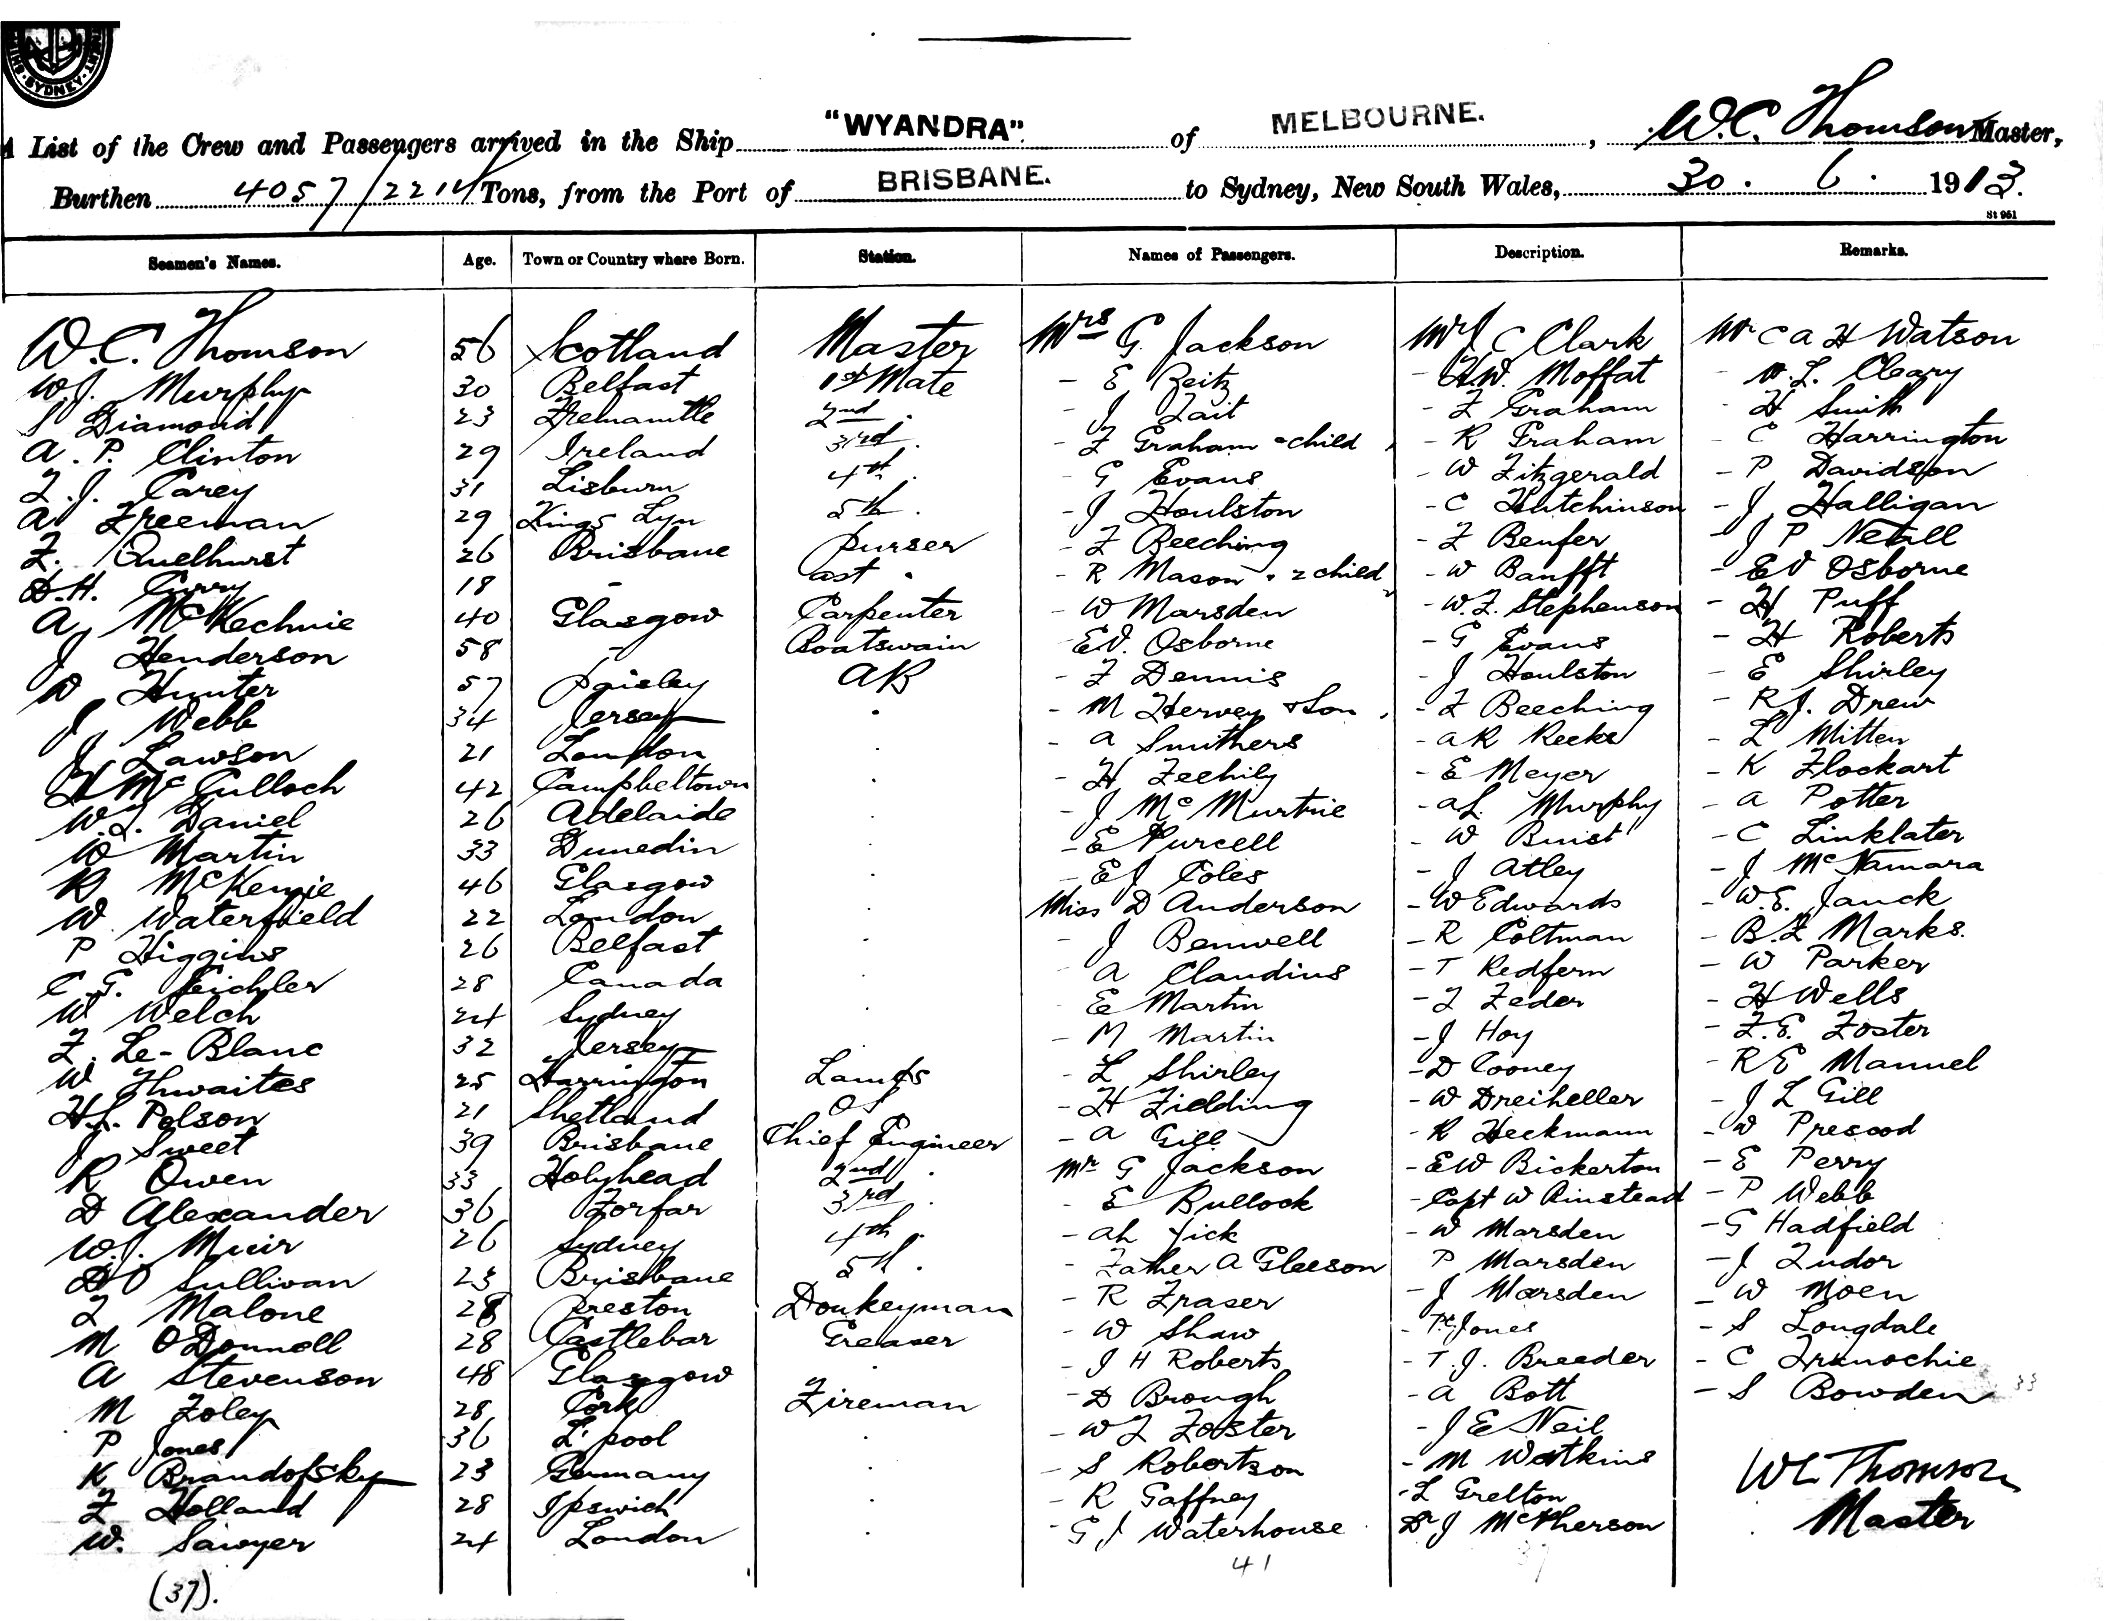 SYDNEY
"WYANDRA" MELBOURNE. W.C. Thomson
A List of the Crew and Passengers arrived in the Ship of , Master,
Burthen 4057/2214 Tons, from the Port of BRISBANE. to Sydney, New South Wales, 30. 6. 1913.
St 951
Seamen's Names. Age. Town or Country where Born. Station. Names of Passengers. Description. Remarks.
W.C. Thomson 56 Scotland Master Mrs G. Jackson Mr J C Clark Mr C A H Watson
W.J. Murphy 30 Belfast 1st Mate - E Zeitz - H.W. Moffat - W.L. Cleary
S Diamond 23 Fremantle 2nd . - J Tait - F Graham - H Smith
A. P. Clinton 29 Ireland 3rd . - F Graham & child - R Graham - C Harrington
T.J. Carey 31 Lisburn 4th . - G Evans - W Fitzgerald - P Davidson
A Freeman 29 Kings Lyn 5th . - J Houlston - C Hutchinson - J Halligan
F. Quelhurst 26 Brisbane Purser - F Beeching - F Benfer - J P Netill
D.H. Curry 18 - ast . - R Mason & 2 child - W Banfft - E V Osborne
A McKechnie 40 Glasgow Carpenter - W Marsden - W.F. Stephenson - H Puff
J Henderson 58 - Boatswain - E V. Osborne - G Evans - H Roberts
D Hunter 57 Paisley AB - F Dennis - J Houlston - E Shirley
J Webb 34 Jersey . - M Hervey & Son - F Beeching - R J. Drew
J Lawson 21 London . - A Smithers - A R Reeks - L Mitten
H McCulloch 42 Campbeltown . - H Feehily - E Meyer - K Flockart
W.J. Daniel 26 Adelaide . - J McMurtrie - A L Murphy - A Potter
W Martin 33 Dunedin . - E Purcell - W Buist - C Linklater
R McKenzie 46 Glasgow . - E J Coles - J Atley - J McNamara
W Waterfield 22 London . Miss D Anderson - W Edwards - W.E. Janck
P Higgins 26 Belfast . - J Benwell - R Coltman - B.F Marks.
C.G. Feichler 28 Canada . - A Claudius - T Redfern - W Parker
W Welch 24 Sydney . - E Martin - F Feder - H Wells
F. Le-Blanc 32 Jersey . - M Martin - J Hoy - F.E. Foster
W Thwaites 25 Harrington Lamps - L Shirley - D Cooney - R E Manuel
H.L. Polson 21 Shetland OS - H Fielding - W Dreiheller - J L Gill
J Sweet 39 Brisbane Chief Engineer - A Gill - R Heckmann - W Prescod
R Owen 33 Holyhead 2nd . Mr G Jackson - E W Bickerton - E Perry
D Alexander 36 Forfar 3rd . - E Bullock - Capt W Ainstead - P Webb
W.J. Muir 26 Sydney 4th . - Ah Yick - W Marsden - G Hadfield
D O Sullivan 23 Brisbane 5th . - Father A Gleeson P Marsden - J Tudor
T Malone 28 Preston Donkeyman - R Fraser - J Marsden - W Moen
M O'Donnell 28 Castlebar Greaser - W Shaw - Jones - S Longdale
A Stevenson 48 Glasgow . - J H Roberts - T.J. Breeder - C
M Foley 28 Cork Fireman - D Brough - A Bott - S Bowden 33
P Jones 36 L'pool . - W F Foster - J E Neil
K Brandofsky 23 Germany . - S Robertson - M Watkins WC Thomson
F Holland 28 Ipswich . - R Gaffney - L Grelton Master
W. Sawyer 24 London . - G J Waterhouse Dr J McPherson
(37). 41 37